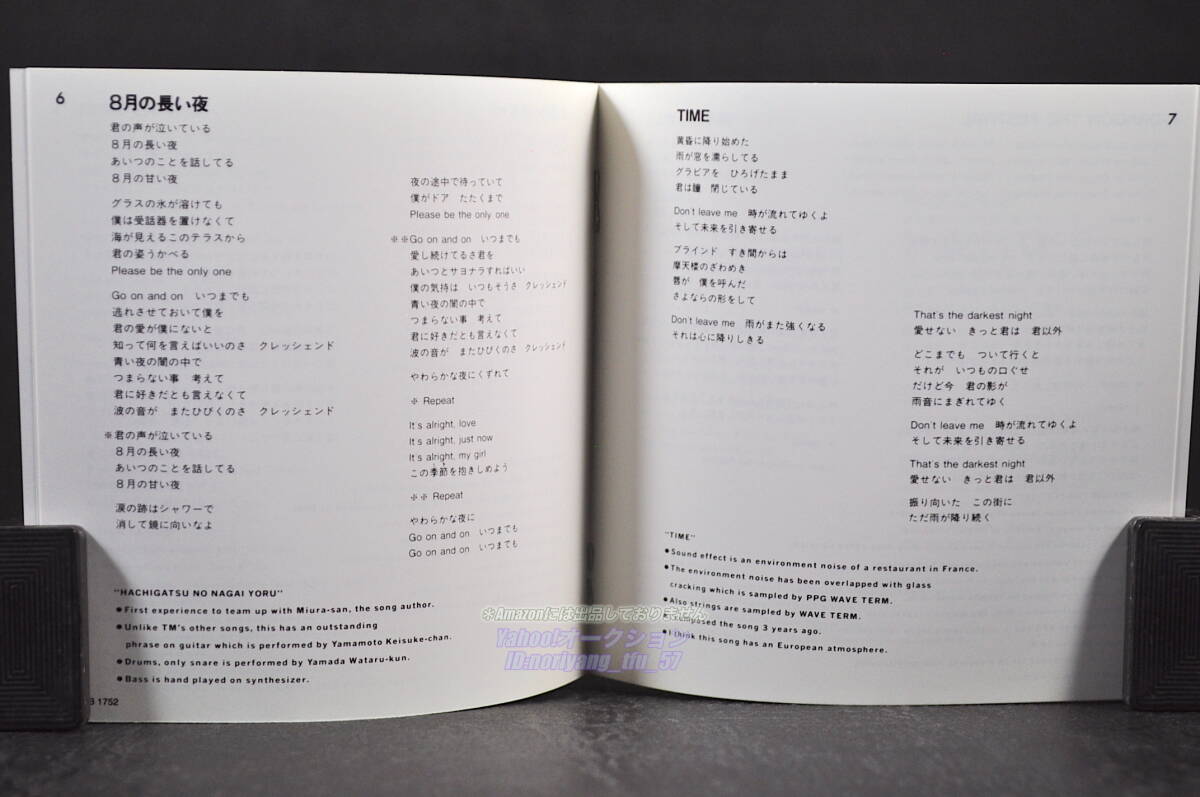 6
8月の長い夜
君の声が泣いている
8月の長い夜
あいつのことを話してる
8月の甘い夜
グラスの氷が溶けても
僕は受話器を置けなくて
海が見えるこのテラスから
君の姿うかべる
Please be the only one
Go on and on　いつまでも
逃れさせておいて僕を
君の愛が僕にないと
知って何を言えばいいのさ　クレッシェンド
青い夜の闇の中で
つまらない事　考えて
君に好きだとも言えなくて
波の音が　またひびくのさ　クレッシェンド
※君の声が泣いている
8月の長い夜
あいつのことを話してる
8月の甘い夜
涙の跡はシャワーで
消して鏡に向いなよ
夜の途中で待っていて
僕がドア　たたくまで
Please be the only one
※※Go on and on　いつまでも
愛し続けてるさ君を
あいつとサヨナラすればいい
僕の気持は　いつもそうさ　クレッシェンド
青い夜の闇の中で
つまらない事　考えて
君に好きだとも言えなくて
波の音が　またひびくのさ　クレッシェンド
やわらかな夜にくずれて
※ Repeat
It's alright, love
It's alright, just now
It's alright, my girl
この季節を抱きしめよう
※※ Repeat
やわらかな夜に
Go on and on　いつまでも
Go on and on　いつまでも
"HACHIGATSU NO NAGAI YORU"
●First experience to team up with Miura-san, the song author.
●Unlike TM's other songs, this has an outstanding
phrase on guitar which is performed by Yamamoto Keisuke-chan.
●Drums, only snare is performed by Yamada Wataru-kun.
●Bass is hand played on synthesizer.
1752
TIME
7
黄昏に降り始めた
雨が窓を濡らしてる
グラビアを　ひろげたまま
君は瞳　閉じている
Don't leave me　時が流れてゆくよ
そして未来を引き寄せる
ブラインド　すき間からは
摩天楼のざわめき
唇が　僕を呼んだ
さよならの形をして
Don't leave me　雨がまた強くなる
それは心に降りしきる
That's the darkest night
愛せない　きっと君は　君以外
どこまでも　ついて行くと
それが　いつもの口ぐせ
だけど今　君の影が
雨音にまぎれてゆく
Don't leave me　時が流れてゆくよ
そして未来を引き寄せる
That's the darkest night
愛せない　きっと君は　君以外
振り向いた　この街に
ただ雨が降り続く
"TIME"
●Sound effect is an environment noise of a restaurant in France.
●The environment noise has been overlapped with glass
cracking which is sampled by PPG WAVE TERM.
●Also strings are sampled by WAVE TERM.
●Composed the song 3 years ago.
●I think this song has an European atmosphere.
※Amazonには出品しておりません
Yahoo!オークション
ID:noriyang_tfu_57